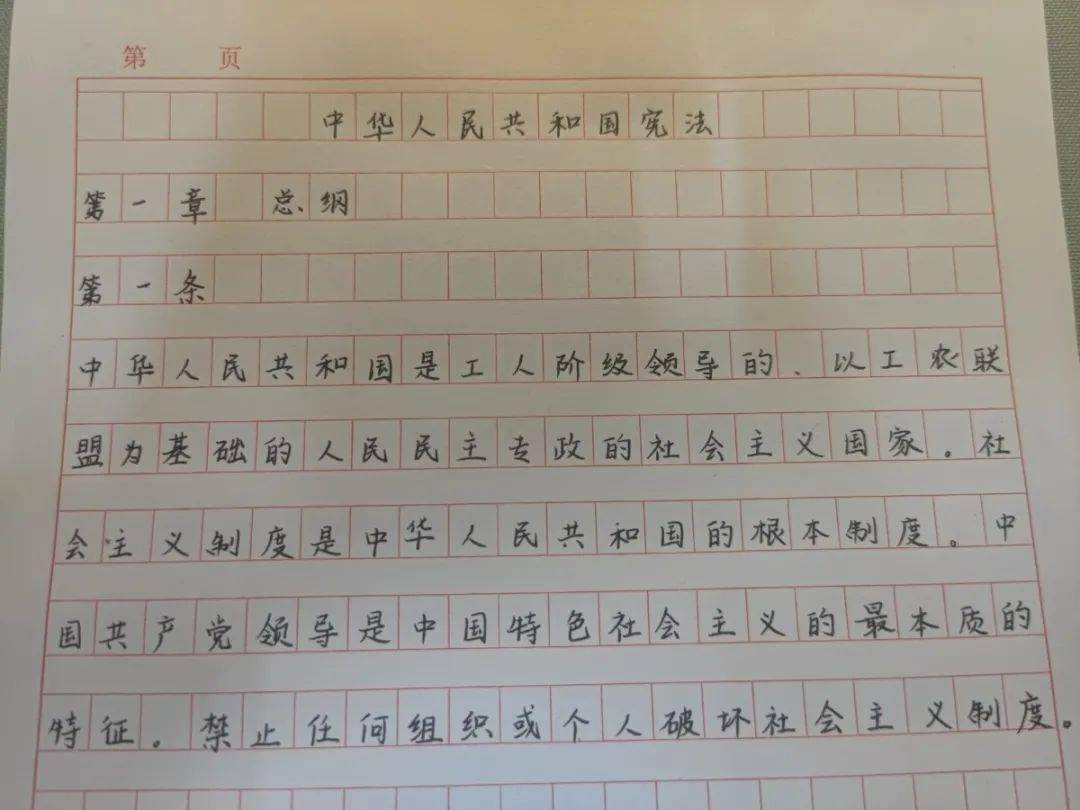 第 页
中华人民共和国宪法
第一章 总纲
第一条
中华人民共和国是工人阶级领导的、以工农联
盟为基础的人民民主专政的社会主义国家。社
会主义制度是中华人民共和国的根本制度。中
国共产党领导是中国特色社会主义的最本质的
特征。禁止任何组织或个人破坏社会主义制度。